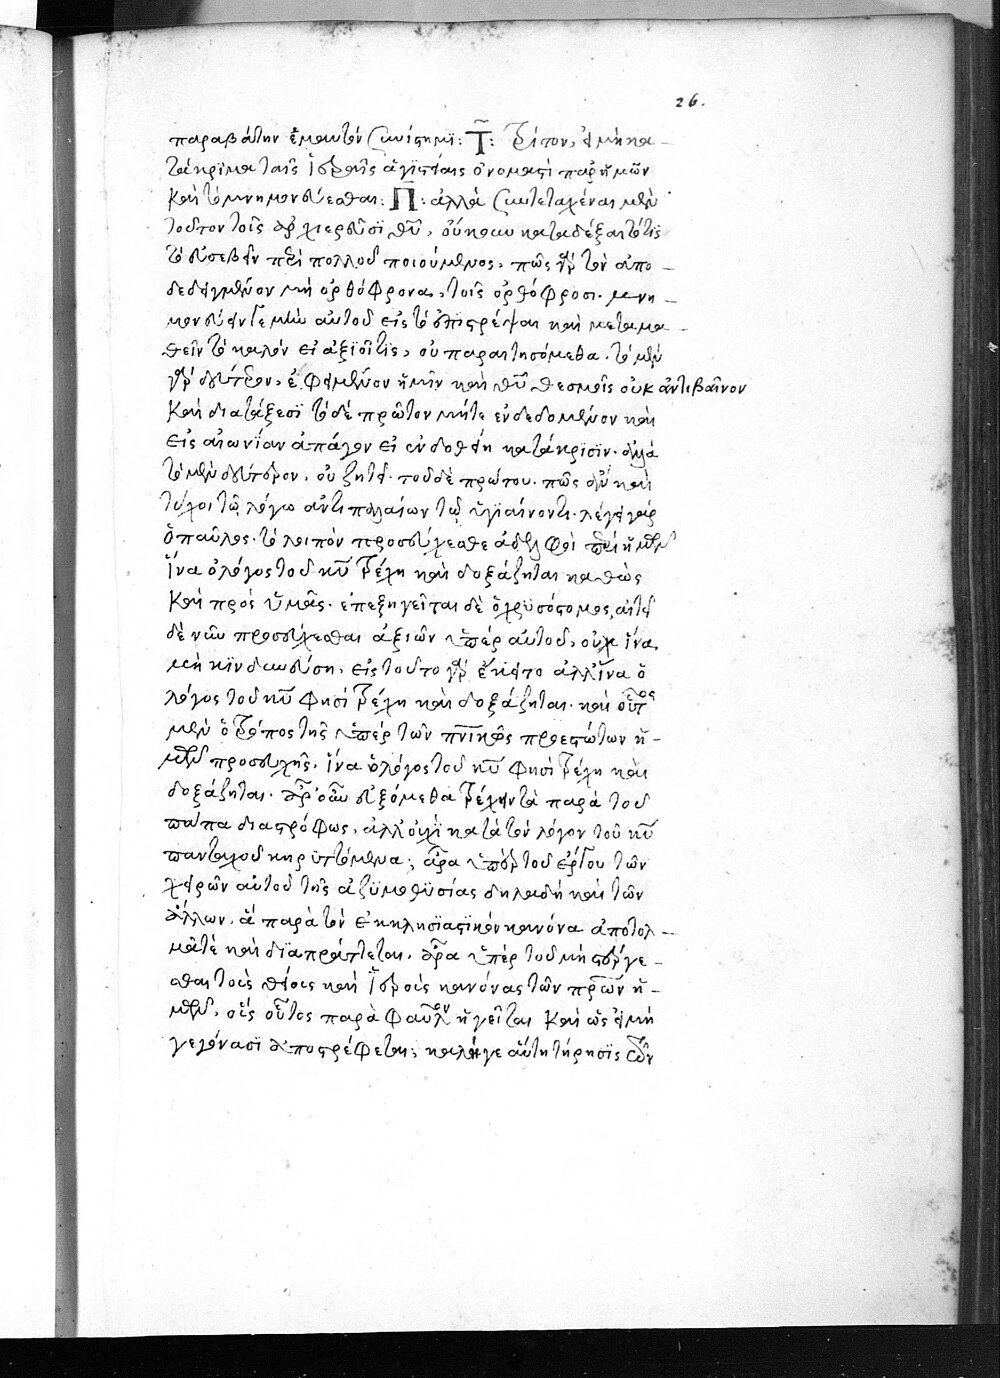 26.
παραβάτην ἐμαυτὸν συνίστημι: Τ̃: τρίτον, εἰ μὴ κα-
τάκριμα ταῖς ἱεραῖς ἁγιστείαις ὀνομαστὶ παρ' ἡμῶν
καὶ τὸ μνημονεύεσθαι: Π̃: ἀλλὰ συντεταγέναι μὲν
τοῦτον τοῖς ἀρχιερεῦσι θῦ, οὔκουν καταδέξαιτό τις
τὸ εὐσεβεῖν περὶ πολλοῦ ποιούμενος, πῶς γὰρ τὸν ἀπο-
δεδειγμένον μὴ ὀρθόφρονα, τοῖς ὀρθόφροσι. μνη-
μονεύειν γε μὴν αὐτοῦ εἰς τὸ ἐπιστρέψαι καὶ μεταμα-
θεῖν τὸ καλὸν εἰ ἀξιοῖ τις, οὐ παραιτησόμεθα. τὸ μὲν
γὰρ δεύτερον, ἐφειμένον ἡμῖν καὶ θῦ θεσμοῖς οὐκ ἀντιβαῖνον
καὶ διατάξεσι τὸ δὲ πρῶτον μήτε ἐνδεδομένον καὶ
εἰς αἰωνίαν ἀπάγον εἰ ἐνδοθείη κατάκρισιν. ἀλλὰ
τὸ μὲν δεύτερον, οὐ ζητεῖ. τοῦ δὲ πρώτου. πῶς ἂν καὶ
τύχοι τῷ λόγῳ ἀντιπαλαίων τῷ ὑγιαίνοντι. λέγει γὰρ
ὁ παῦλος. τὸ λοιπὸν προσεύχεσθε ἀδελφοὶ περὶ ἡμῶν
ἵνα ὁ λόγος τοῦ κῦ τρέχη καὶ δοξάζηται καθὼς
καὶ πρὸς ὑμᾶς. ἐπεξηγεῖται δὲ ὁ χρυσόστομος, αἰτεῖ
δὲ νῦν προσεύχεσθαι ἀξιῶν ὑπὲρ αὐτοῦ, οὐχ ἵνα
μὴ κινδυνεύση, εἰς τοῦτο γὰρ ἔκειτο ἀλλ' ἵνα ὁ
λόγος τοῦ κῦ φησὶ τρέχη καὶ δοξάζηται. καὶ οὗτος
μὲν ὁ τρόπος τῆς ὑπὲρ τῶν πνικῶς προεστώτων ἡ-
μῶν προσευχῆς. ἵνα ὁ λόγος τοῦ κῦ φησὶ τρέχη καὶ
δοξάζηται. ἆρ' οὖν εὐξόμεθα τρέχειν τὰ παρὰ τοῦ
πάπα διαστρόφως, ἀλλ' οὐχὶ κατὰ τὸν λόγον τοῦ κῦ
πανταχοῦ κηρυττόμενα; ἆρα ὑπὲρ τοῦ ἔργου τῶν
χειρῶν αὐτοῦ τῆς ἀζυμοθυσίας δηλαδὴ καὶ τῶν
ἄλλων, ἃ παρὰ τὸν ἐκκλησιαστικὸν κανόνα ἀποτολ-
μᾶτέ καὶ διαπράττεται. ἆρα ὑπὲρ τοῦ μὴ στέργε-
σθαι τοῖς θείοις καὶ ἱεροῖς κανόνας τῶν πρῶν ἡ-
μῶν, οἷς οὗτος παρὰ φαῦλον ἡγεῖται καὶ ὡς εἰ μὴ
γεγόνασι ἀποστρέφεται; καλήγε αὕτη τήρησις τῶν